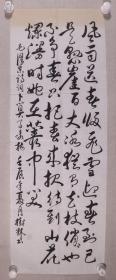 風雨送春歸飛雪迎春到已
是懸崖百丈冰猶有花枝俏也
不爭春只把春來報待到山花
爛漫時她在叢中笑
毛澤東詩詞卜算子詠梅 壬辰年夏月樹林書